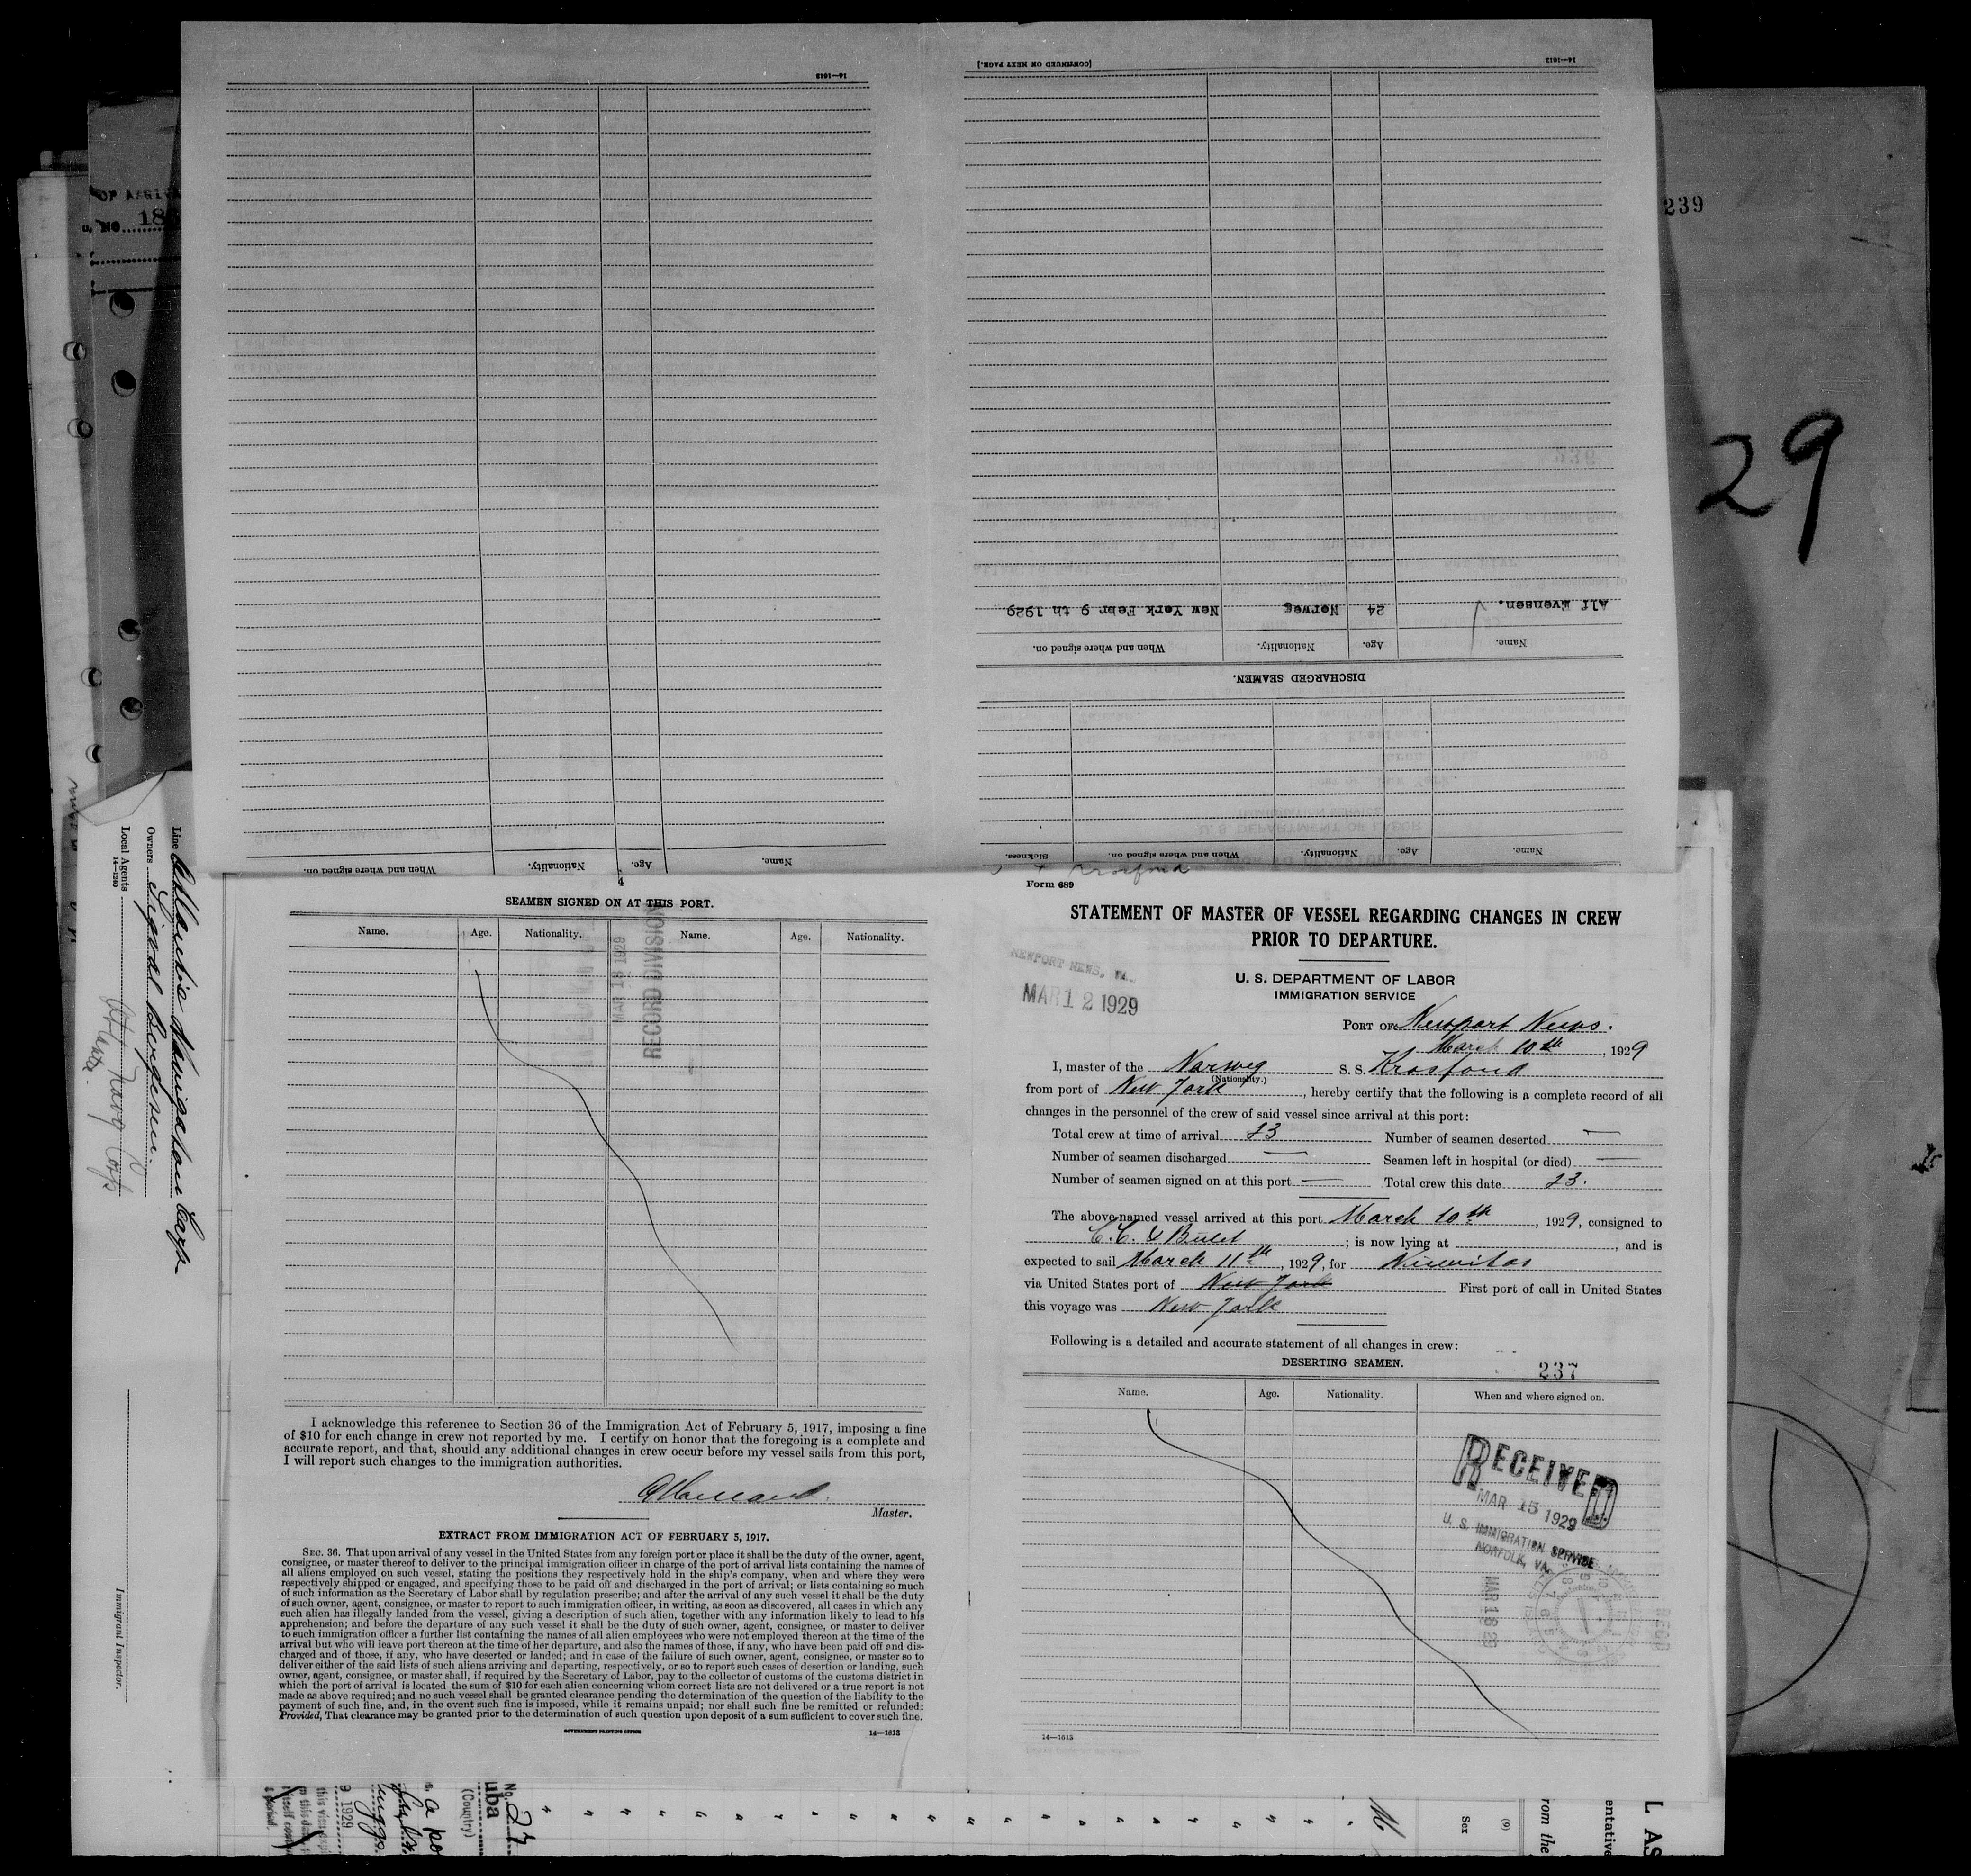 14—1613
[CONTINUED ON NEXT PAGE.]
14—1612
OF ARRIVA
No. 18
239
29
Alf Evensen.
24
Norweg
New York Febr 9 th 1929
Name.
Age.
Nationality.
When and where signed on.
DISCHARGED SEAMEN.
Name.
Age.
Nationality.
When and where signed on.
Sickness.
Name.
Age.
Nationality.
When and where signed on.
Line Atlantic Navigation Corp.
Owners Sigval Bergesen.
Local Agents Atlantic Navg Corp
14—1240
Immigrant Inspector.
4
SEAMEN SIGNED ON AT THIS PORT.
Name. Age. Nationality. Name. Age. Nationality.
MAR 18 1929
RECORD DIVISION
I acknowledge this reference to Section 36 of the Immigration Act of February 5, 1917, imposing a fine
of $10 for each change in crew not reported by me. I certify on honor that the foregoing is a complete and
accurate report, and that, should any additional changes in crew occur before my vessel sails from this port,
I will report such changes to the immigration authorities.
Master.
EXTRACT FROM IMMIGRATION ACT OF FEBRUARY 5, 1917.
SEC. 36. That upon arrival of any vessel in the United States from any foreign port or place it shall be the duty of the owner, agent,
consignee, or master thereof to deliver to the principal immigration officer in charge of the port of arrival lists containing the names of
all aliens employed on such vessel, stating the positions they respectively hold in the ship's company, when and where they were
respectively shipped or engaged, and specifying those to be paid off and discharged in the port of arrival; or lists containing so much
of such information as the Secretary of Labor shall by regulation prescribe; and after the arrival of any such vessel it shall be the duty
of such owner, agent, consignee, or master to report to such immigration officer, in writing, as soon as discovered, all cases in which any
such alien has illegally landed from the vessel, giving a description of such alien, together with any information likely to lead to his
apprehension; and before the departure of any such vessel it shall be the duty of such owner, agent, consignee, or master to deliver
to such immigration officer a further list containing the names of all alien employees who were not employed thereon at the time of the
arrival but who will leave port thereon at the time of her departure, and also the names of those, if any, who have been paid off and dis-
charged and of those, if any, who have deserted or landed; and in case of the failure of such owner, agent, consignee, or master so to
deliver either of the said lists of such aliens arriving and departing, respectively, or so to report such cases of desertion or landing, such
owner, agent, consignee, or master shall, if required by the Secretary of Labor, pay to the collector of customs of the customs district in
which the port of arrival is located the sum of $10 for each alien concerning whom correct lists are not delivered or a true report is not
made as above required; and no such vessel shall be granted clearance pending the determination of the question of the liability to the
payment of such fine, and, in the event such fine is imposed, while it remains unpaid; nor shall such fine be remitted or refunded:
Provided, That clearance may be granted prior to the determination of such question upon deposit of a sum sufficient to cover such fine.
GOVERNMENT PRINTING OFFICE
14—1613
Form 689
STATEMENT OF MASTER OF VESSEL REGARDING CHANGES IN CREW
PRIOR TO DEPARTURE.
U. S. DEPARTMENT OF LABOR
IMMIGRATION SERVICE
NEWPORT NEWS, VA.
MAR 12 1929
PORT OF Newport News.
March 10th, 1929
I, master of the Norweg S. S. Krosfond
(Nationality.)
from port of New York, hereby certify that the following is a complete record of all
changes in the personnel of the crew of said vessel since arrival at this port:
Total crew at time of arrival 23 Number of seamen deserted —
Number of seamen discharged — Seamen left in hospital (or died) —
Number of seamen signed on at this port — Total crew this date 23.
The above-named vessel arrived at this port March 10th, 1929, consigned to
C. C. ; is now lying at , and is
expected to sail March 11th, 1929, for Nuevitas
via United States port of New York First port of call in United States
this voyage was New York
Following is a detailed and accurate statement of all changes in crew:
DESERTING SEAMEN.
237
Name. Age. Nationality. When and where signed on.
RECEIVED
MAR 15 1929
U. S. IMMIGRATION SERVICE
NORFOLK, VA.
MAR 18 29
14—1613
9 1929
(Country)
uba
No. 27
M
Sex
(9)
rom the
entative
L AS